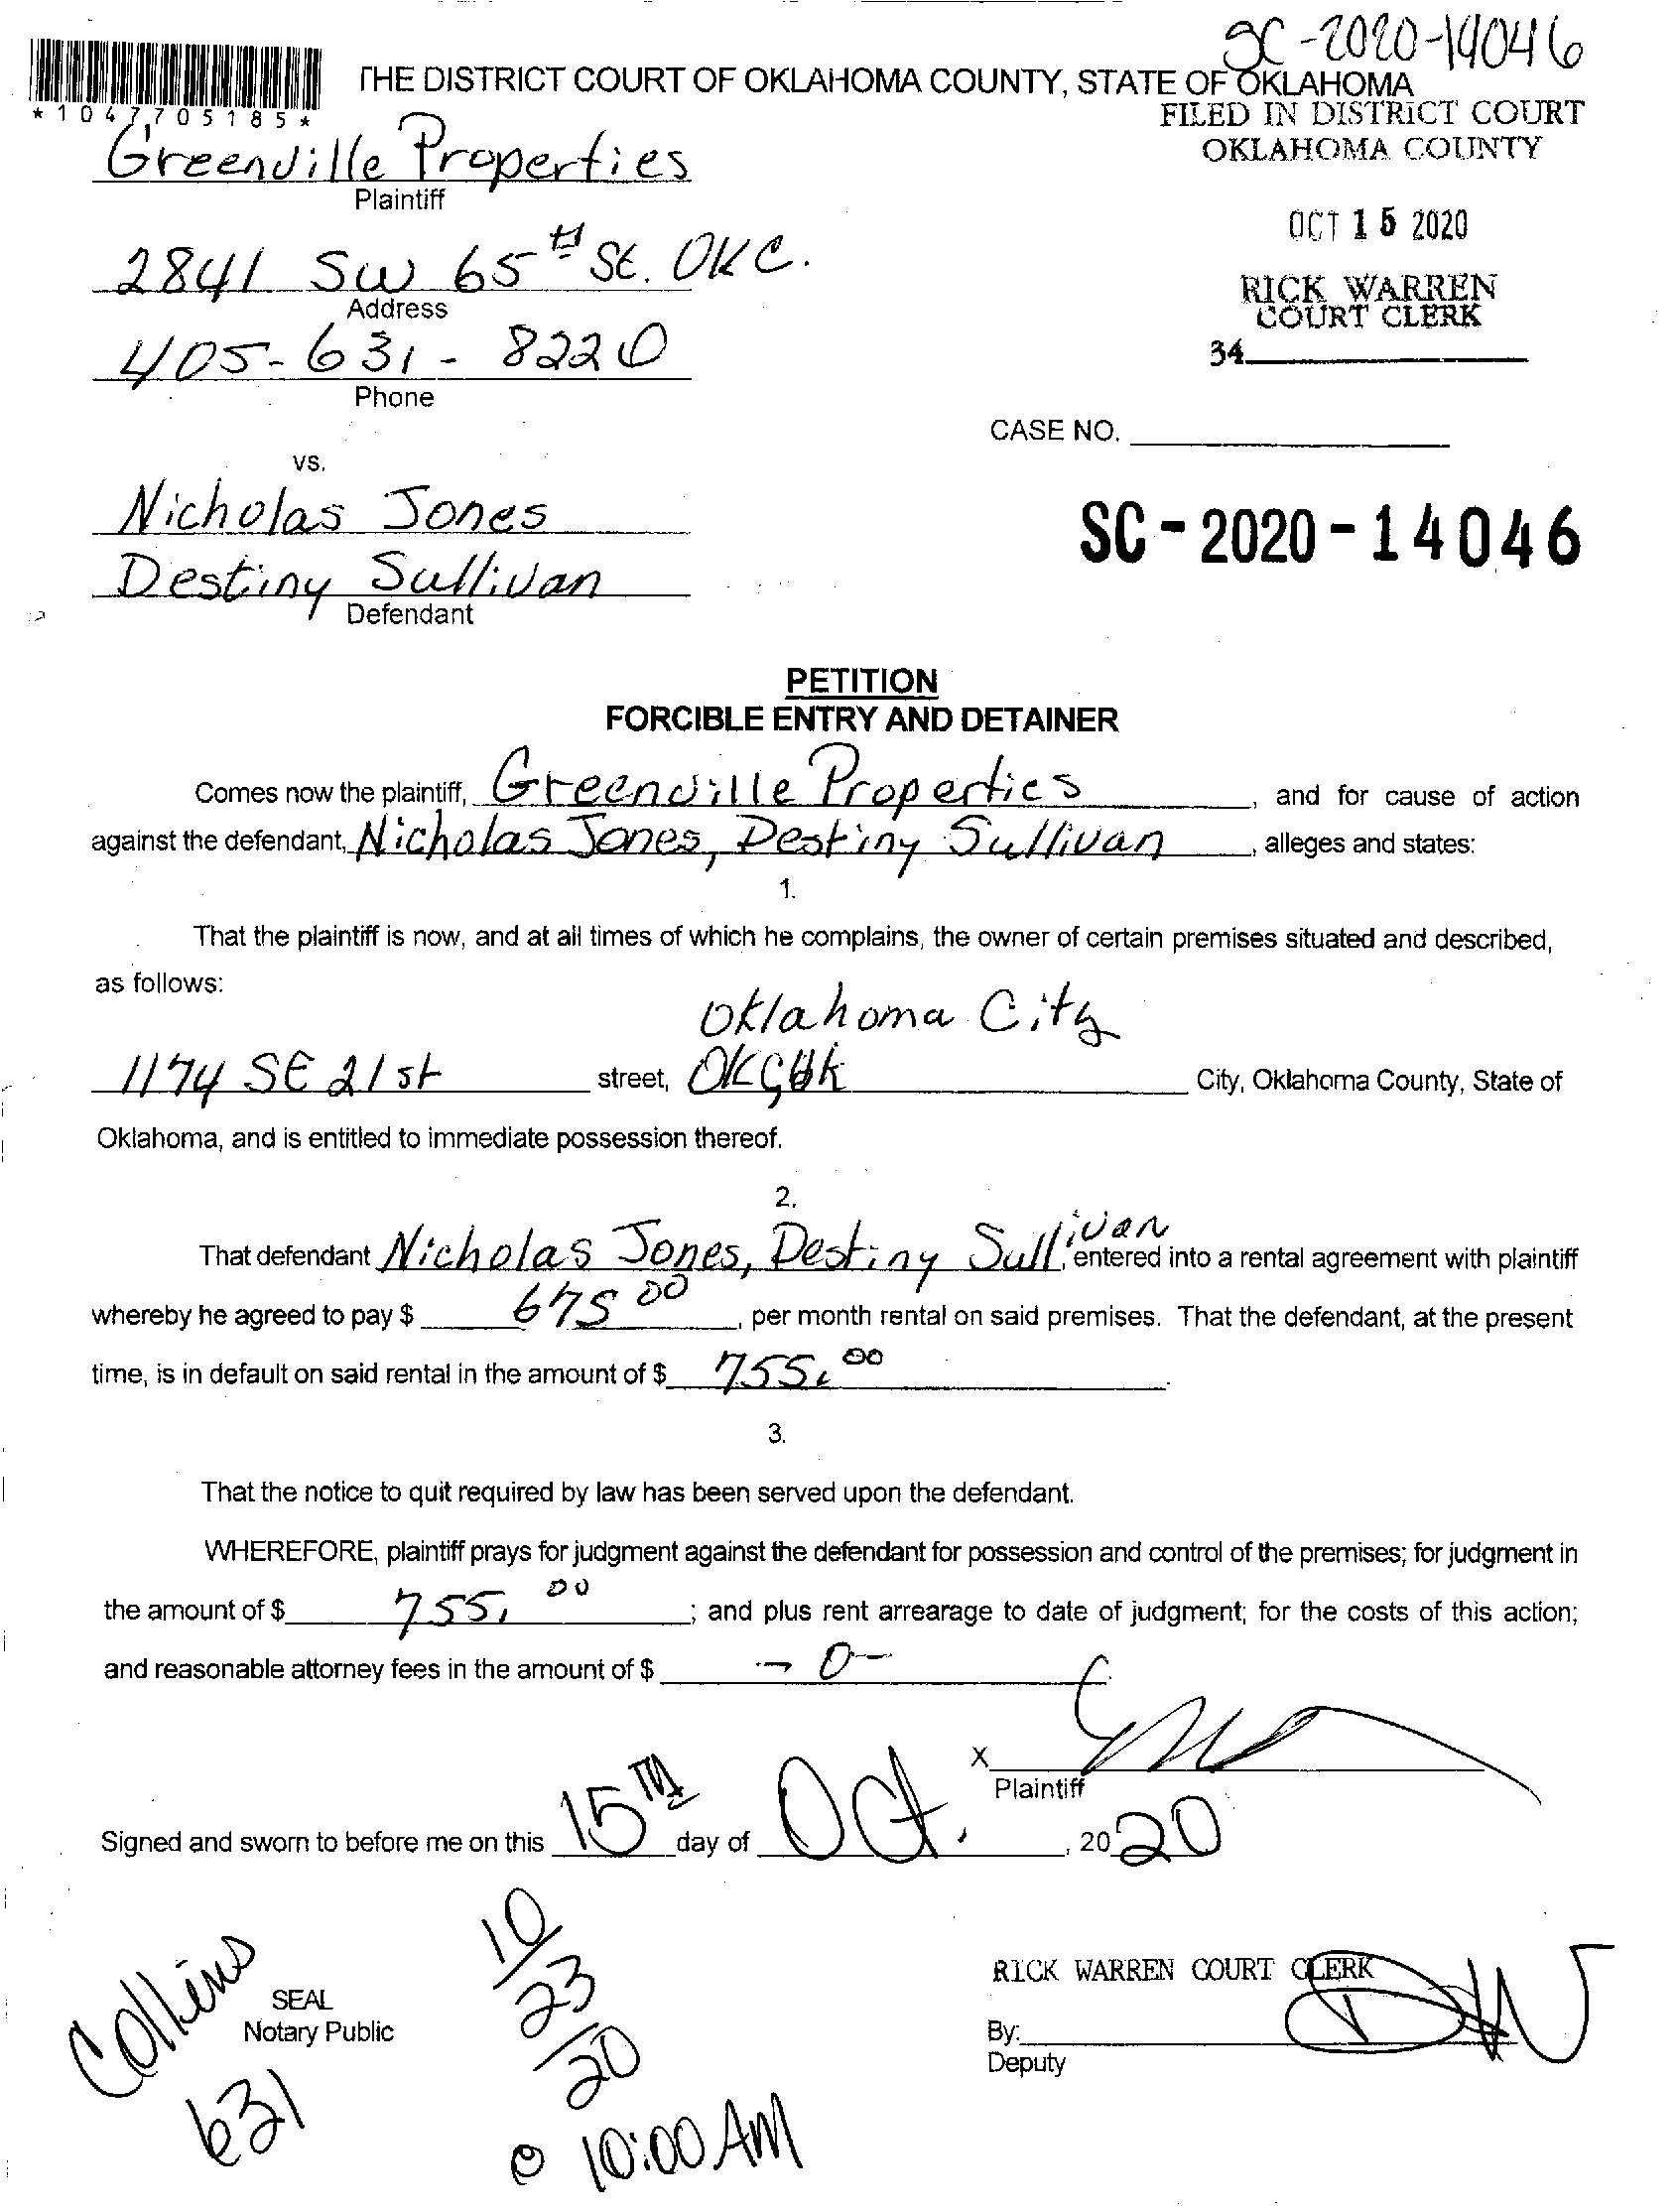 SC-2020-14046
THE DISTRICT COURT OF OKLAHOMA COUNTY, STATE OF OKLAHOMA
*1047705185*
FILED IN DISTRICT COURT
OKLAHOMA COUNTY
Greenville Properties
Plaintiff
OCT 15 2020
2841 SW 65th St. OKC.
Address
RICK WARREN
COURT CLERK
34
405-631-8220
Phone
CASE NO.
vs.
Nicholas Jones
SC-2020-14046
Destiny Sullivan
Defendant
PETITION
FORCIBLE ENTRY AND DETAINER
Comes now the plaintiff, Greenville Properties, and for cause of action
against the defendant, Nicholas Jones, Destiny Sullivan, alleges and states:
1.
That the plaintiff is now, and at all times of which he complains, the owner of certain premises situated and described,
as follows:
Oklahoma City
1174 SE 21st street, OKC, Ok City, Oklahoma County, State of
Oklahoma, and is entitled to immediate possession thereof.
2.
That defendant Nicholas Jones, Destiny Sullivan, entered into a rental agreement with plaintiff
whereby he agreed to pay $ 675 00, per month rental on said premises. That the defendant, at the present
time, is in default on said rental in the amount of $ 755.00.
3.
That the notice to quit required by law has been served upon the defendant.
WHEREFORE, plaintiff prays for judgment against the defendant for possession and control of the premises; for judgment in
the amount of $ 755.00; and plus rent arrearage to date of judgment; for the costs of this action;
and reasonable attorney fees in the amount of $ -0-
X
Plaintiff
Signed and sworn to before me on this 15TH day of Oct., 2020
Collins
631
SEAL
Notary Public
10/23/20
@ 10:00 AM
RICK WARREN COURT CLERK
By: DW
Deputy